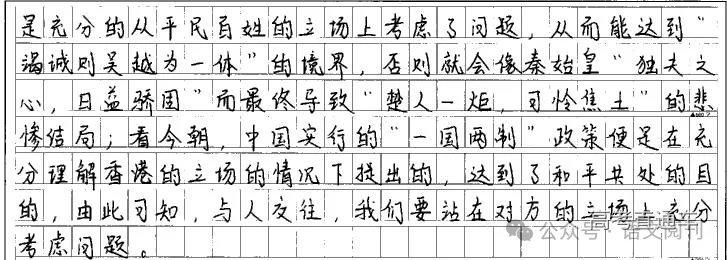 是充分的从平民百姓的立场上考虑了问题，从而能达到“
竭诚则吴越为一体”的境界，否则就会像秦始皇“独夫之
心，日益骄固”而最终导致“楚人一炬，可怜焦土”的悲
惨结局；看今朝，中国实行的“一国两制”政策便是在充
分理解香港的立场的情况下提出的，达到了和平共处的目
的，由此可知，与人交往，我们要站在对方的立场上充分
考虑问题。
高考直通车
公众号·语文阅刊